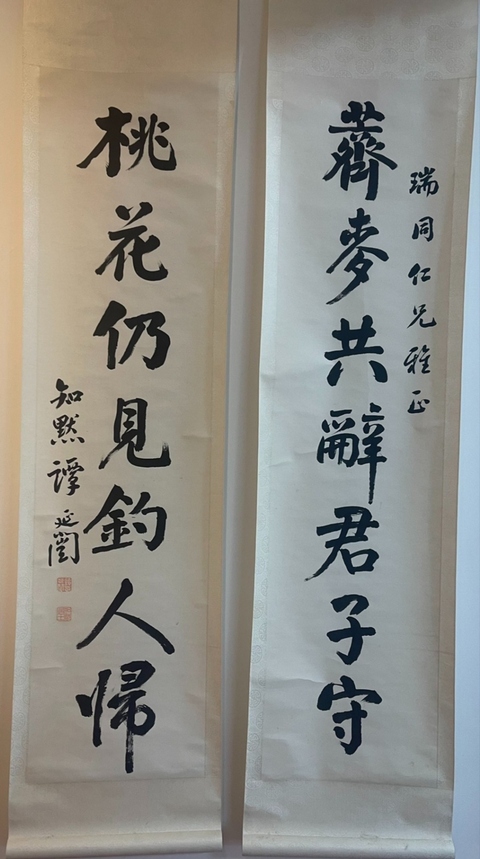 瑞同仁兄雅正
薺麥共辭君子守
桃花仍見釣人帰
知默譚延闓